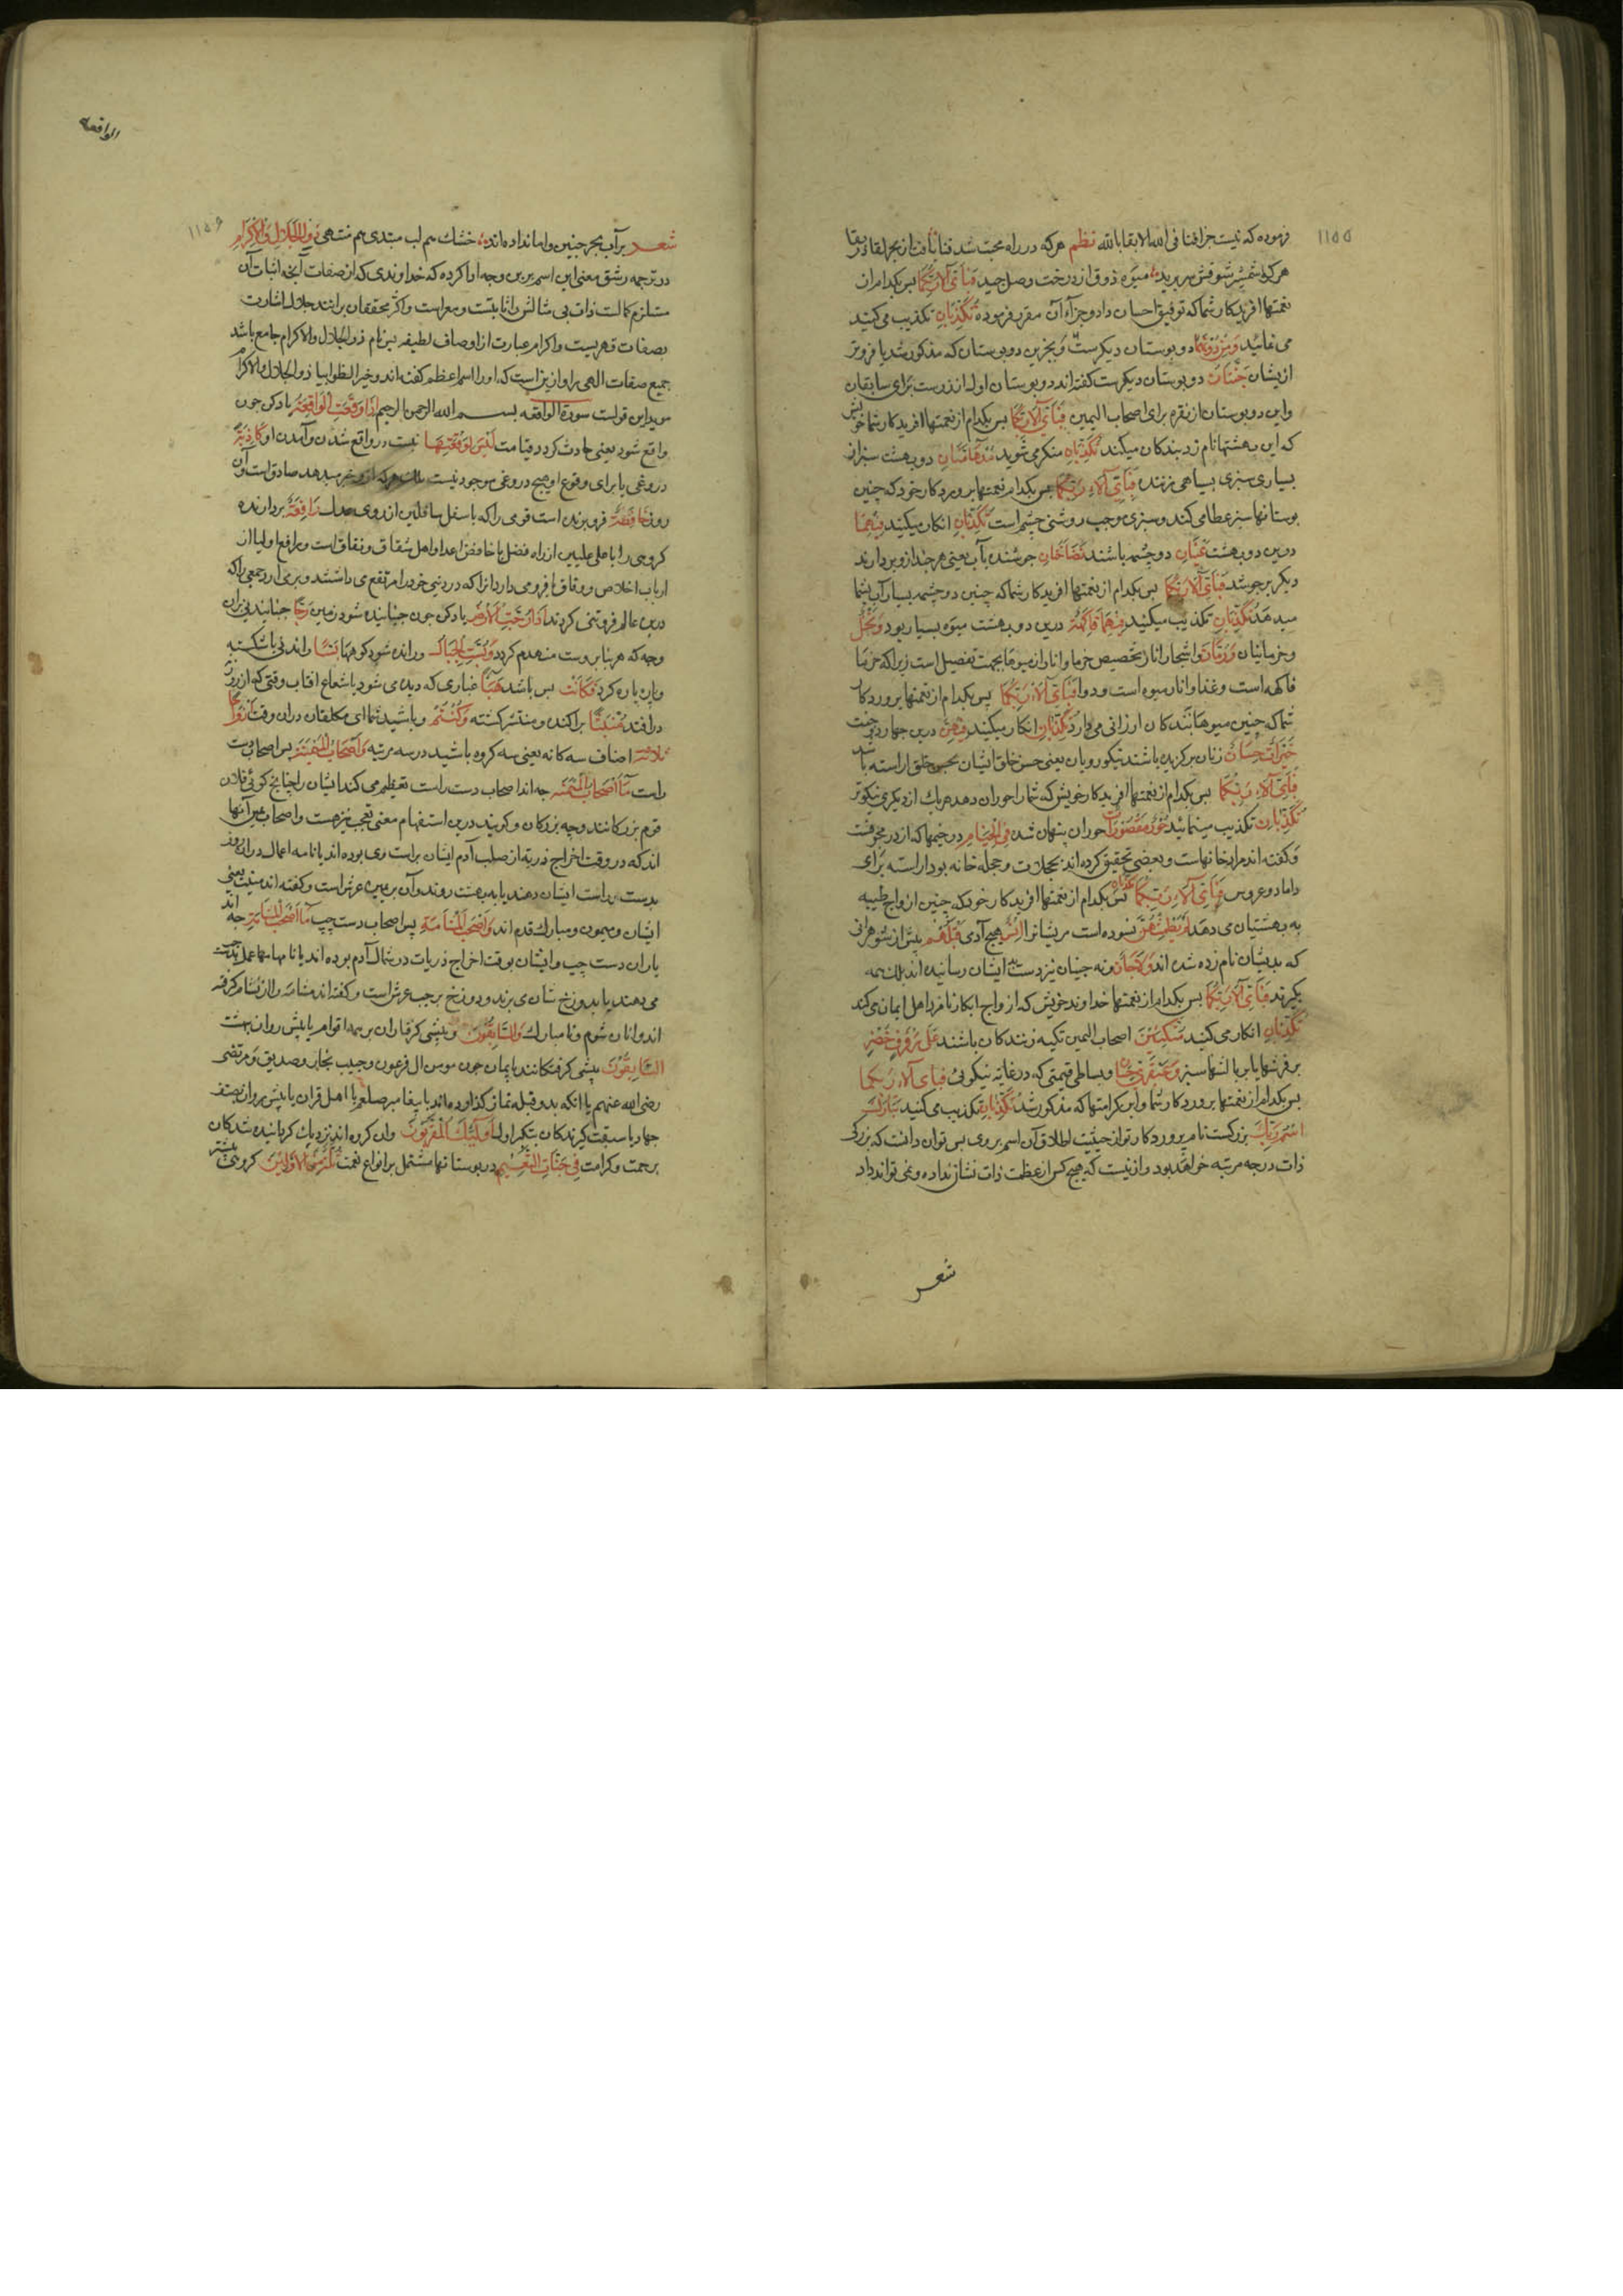 ۱۱۵۵
فرموده که نیست جزا فنا فی الله الا بقا بالله نظم هرکه در راه محبت شد فنا یافت از بحر لقاء در بقا
هرکرا شمشیر شوقش سر برید میوه ذوق از درخت وصل چید فَبِاَیِّ آلَاءِ رَبِّكُمَا پس بکدام از آن
نعمتها افریدکار شما که توفیق احسان داد و جزآء آن مقرر فرموده تُكَذِّبَانِ تکذیب می کنید
می نمائید وَمِنْ دُونِهِمَا و دو بوستان دیکرست و بجز این دو بوستان که مذکور شد یا فروتر
ازیشان جَنَّتَانِ دو بوستان دیکرست کفته اند دو بوستان اول از زرست برای سابقان
واین دو بوستان از نقره برای اصحاب الیمین فَبِاَیِّ آلَاءِ رَبِّكُمَا پس بکدام از نعمتها افریدکار شما خویش
که این بهشتها نام زد بندکان میکند تُكَذِّبَانِ منکر می شوید مُدْهَامَّتَانِ دو بهشت سبز از
بسیاری سبزی بسیاهی مزننده فَبِاَیِّ آلَاءِ رَبِّكُمَا پس بکدام نعمتها پروردکار خود که چنین
بوستانها سبز عطا می کند و سبزی موجب روشنی چشم است تُكَذِّبَانِ انکار میکنید فِیهِمَا
درین دو بهشت عَیْنَانِ دو چشمه باشند نَضَّاخَتَانِ جوشنده بآب یعنی هرچند ازو بردارند
دیکر برجوشد فَبِاَیِّ آلَاءِ رَبِّكُمَا پس بکدام از نعمتها افریدکار شما که چنین دو چشمه بسیار آب بشما
میدهد تُكَذِّبَانِ تکذیب میکنید فِیهِمَا فَاكِهَةٌ درین دو بهشت میوه بسیار بود وَنَخْلٌ
و خرما بنان وَرُمَّانٌ و اشجار انار تخصیص خرما و انار از میوها بجهت تفضیل است زیرا که خرما
فاکهه است و غذا و انار میوه است و دوا فَبِاَیِّ آلَاءِ رَبِّكُمَا پس بکدام از نعمتها پروردکار
شما که چنین میوها بندکان ارزانی می دارد تُكَذِّبَانِ انکار میکنید فِیهِنَّ درین چهار جنت
خَیْرَاتٌ حِسَانٌ زنان برکزیده باشند نیکو رویان یعنی حسن خلق ایشان بحسن خلق اراسته باشد
فَبِاَیِّ آلَاءِ رَبِّكُمَا پس بکدام از نعمتها افریدکار خویش که شما را حوران دهد هریك از دیکری نیکوتر
تُكَذِّبَانِ تکذیب مینمائید حُورٌ مَقْصُورَاتٌ حوران پنهان شده فِی الْخِیَامِ در خیمها که از در مجوفست
وکفته اند مراد خانهاست و بعضی تحقیق کرده اند بحجلات و حجله خانه بود اراسته برای
داماد و عروس فَبِاَیِّ آلَاءِ رَبِّكُمَا پس بکدام از نعمتها افریدکار خود که چنین ازواج طیبه
به بهشتیان می دهد لَمْ یَطْمِثْهُنَّ نسوده است مریشانرا اِنْسٌ هیچ آدمی قَبْلَهُمْ پیش از شوهرانی
که بدیشان نام زده شده اند وَلَا جَآنٌّ و نه جنیان نیز دست ایشان رسانیده اند بلك همه
بکرند فَبِاَیِّ آلَاءِ رَبِّكُمَا پس بکدام از نعمتها خداوند خویش که ازواج ابکار نامزد اهل ایمان می کند
تُكَذِّبَانِ انکار می کنید مُتَّكِئِینَ اصحاب الیمین تکیه زنندکان باشند عَلَی رَفْرَفٍ خُضْرٍ
بر فرشها یا بر بالشها سبز وَعَبْقَرِیٍّ حِسَانٍ و بساطی قیمتی که درغایة نیکوئی فَبِاَیِّ آلَاءِ رَبِّكُمَا
پس بکدام از نعمتها پروردکار شما واین کرامتها که مذکور شد تُكَذِّبَانِ تکذیب می کنید تَبَارَكَ
اسْمُ رَبِّكَ بزرکست نام پروردکار تو از حیثیت اطلاق آن اسم بروی پس توان دانست که بزرکی
ذات در چه مرتبه خواهد بود و از نیست که هیچ کس از عظمت ذات نشان نداده و نمی تواند داد
شعر
الواقعه
۱۱۵۶
شعر بر آب بحر جنین وا مانداده مانده خشك هم لب مبتدی هم منتهی ذُو الْجَلَالِ وَالْاِكْرَامِ
در ترجمه رشق معنی این اسم برین وجه ادا کرده که خداوندی که از صفات آنچه اثبات آن
مستلزم کمالست ذات بی مثالش را ثابتست و معراست و اکثر محققان برانند جلال اشارت
بصفات قهریست و اکرام عبارت از اوصاف لطیفه پس نام ذوالجلال والاکرام جامع باشد
جمیع صفات الهی را و ازینراست که اورا اسم اعظم کفته اند و خبر الظوا بیا ذوالجلال والاکرام
موید این قولست سورة الواقعه بسم الله الرحمن الرحیم اِذَا وَقَعَتِ الْوَاقِعَةُ یاد کن چون
واقع شود یعنی حادث کردد قیامت لَیْسَ لِوَقْعَتِهَا نیست در واقع شدن و آمدن او كَاذِبَةٌ
دروغی یا برای وقوع او هیچ دروغی موجود نیست بلك هرکه ازو خبر میدهد صادق است وآن
روز خَافِضَةٌ فرو برنده است قومی را که باسفل سافلین اندوی عدل رَافِعَةٌ بردارنده
کروهی را باعلی علیین از راه فضل یا خافض اعدا واهل شقاق و نفاق است و رافع اولیا از
ارباب اخلاص و وفاق یا فرو می دارد انرا که در دنیی خود را مرتفع می داشتند و برمی ارد جمعی را که
درین عالم فروتنی کردند اِذَا رُجَّتِ الْاَرْضُ یاد کن چون جنبانیده شود زمین رَجًّا جنبانیدنی بران
وجه که هر بنا بروست منهدم کردد وَبُسَّتِ الْجِبَالُ و رانده شود کوهها بَسًّا راندنی یا شکسته
و پاره پاره کردد فَكَانَتْ پس باشد هَبَآءً غباری که دیده می شود باشعاع افتاب وقتی که از روزن
درافتد مُنْبَثًّا پراکنده و منتشر کشته وَكُنْتُمْ و باشید شما ای مکلفان دران وقت اَزْوَاجًا
ثَلَاثَةً اصناف سه کانه یعنی سه کروه باشید در سه مرتبه فَاَصْحَابُ الْمَیْمَنَةِ پس اصحاب دست
راست مَآ اَصْحَابُ الْمَیْمَنَةِ چه اند اصحاب دست راست تعظیم می کند ایشان را چنانچ کوئی فلان
قوم بزرکانند و چه بزرکان و کویند درین استفهام معنی تعجب نیز هست و اصحاب یمین آنها
اند که در وقت اخراج ذریة از صلب آدم ایشان براست وی بوده اند یا نامه اعمال دران روز
بدست راست ایشان دهند یا به بهشت روند وآن بر یمین عرش است وکفته اند میمنت یعنی
ایشان میمون و مبارك قدم اند وَاَصْحَابُ الْمَشْاَمَةِ پس اصحاب دست چپ مَآ اَصْحَابُ الْمَشْاَمَةِ چه اند
یاران دست چپ وایشان بوقت اخراج ذریات در شمال آدم بوده اند یا نامها بدست چپ
می دهند یا بدوزخ شان می برند و دوزخ بر چپ عرش است وکفته اند مشامة را از شام کرفته
اند وانان شوم و نامبارك وَالسَّابِقُونَ و پیشی کرفتاران بر همه اقوام یا پیش روان بهشت
السَّابِقُونَ پیشی کرفتکانند بایمان چون مومن ال فرعون و حبیب نجار و صدیق و مرتضی
رضی الله عنهم یا انکه بدو قبله نماز کذارده اند با پیغامبر صلعم یا اهل قران یا پیش روان بصف
جهاد یا سبقت کیرندکان بتکبر اولی اُولٰٓئِكَ الْمُقَرَّبُونَ وان کروه اند نزدیك کردانیده شدکان
برحمت و کرامت فِی جَنَّاتِ النَّعِیمِ در بوستانها مشتمل بر انواع نعمت ثُلَّةٌ مِنَ الْاَوَّلِینَ کروهی بیشتر